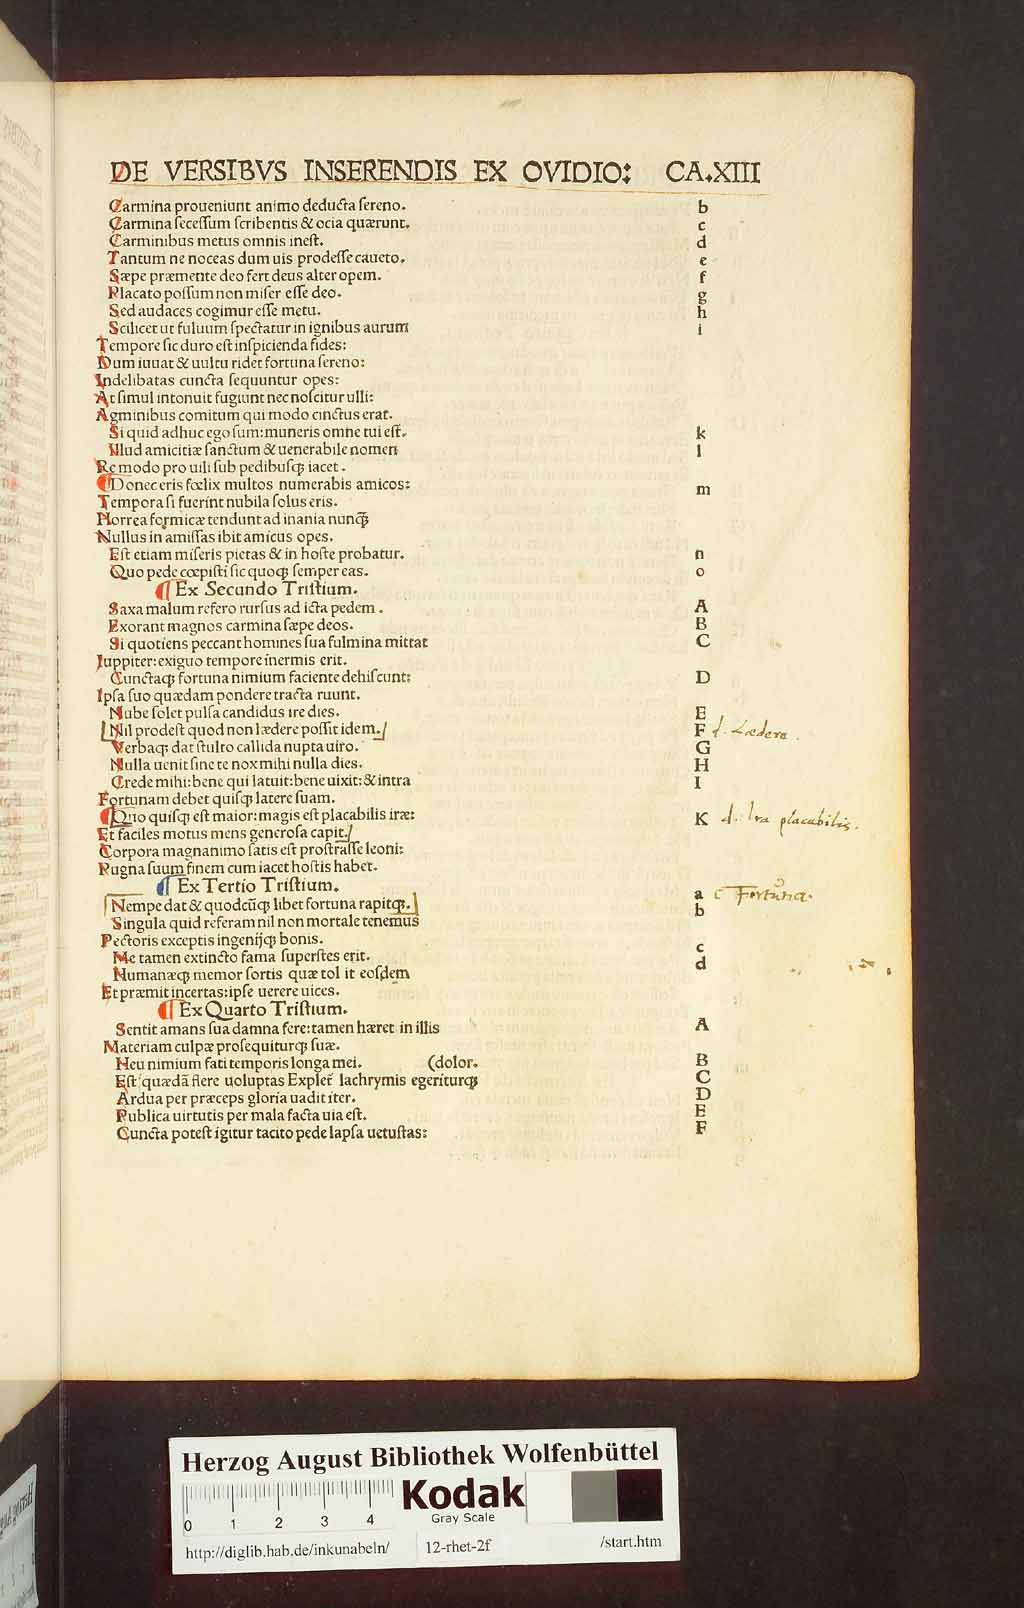 DE VERSIBVS INSERENDIS EX OVIDIO: CA.XIII
Carmina proueniunt animo deducta ſereno. b
Carmina ſeceſſum ſcribentis & ocia quærunt. c
Carminibus metus omnis ineſt. d
Tantum ne noceas dum uis prodeſſe caueto. e
Sæpe præmente deo fert deus alter opem. f
Placato poſſum non miſer eſſe deo. g
Sed audaces cogimur eſſe metu. h
Scilicet ut fuluum ſpectatur in ignibus aurum i
Tempore ſic duro eſt inſpicienda fides:
Dum iuuat & uultu ridet fortuna ſereno:
Indelibatas cuncta ſequuntur opes:
At ſimul intonuit fugiunt nec noſcitur ulli:
Agminibus comitum qui modo cinctus erat.
Si quid adhuc ego ſum: muneris omne tui eſt. k
Illud amicitiæ ſanctum & uenerabile nomen l
Re modo pro uili ſub pedibuſqꝫ iacet.
¶Donec eris fœlix multos numerabis amicos: m
Tempora ſi fuerint nubila ſolus eris.
Horrea formicæ tendunt ad inania nunq̃
Nullus in amiſſas ibit amicus opes.
Eſt etiam miſeris pietas & in hoſte probatur. n
Quo pede cœpiſti ſic quoqꝫ ſemper eas. o
¶ Ex Secundo Triſtium.
Saxa malum refero rurſus ad icta pedem. A
Exorant magnos carmina ſæpe deos. B
Si quotiens peccant homines ſua fulmina mittat C
Iuppiter: exiguo tempore inermis erit.
Cunctaqꝫ fortuna nimium faciente dehiſcunt: D
Ipſa ſuo quædam pondere tracta ruunt.
Nube ſolet pulſa candidus ire dies. E
Nil prodeſt quod non lædere poſſit idem. F d. Lædere.
Verbaqꝫ dat ſtulto callida nupta uiro. G
Nulla uenit ſine te nox mihi nulla dies. H
Crede mihi: bene qui latuit: bene uixit: & intra I
Fortunam debet quiſqꝫ latere ſuam.
¶Quo quiſqꝫ eſt maior: magis eſt placabilis iræ: K d. Ira placabilis.
Et faciles motus mens generoſa capit.
Corpora magnanimo ſatis eſt proſtraſſe leoni:
Pugna ſuum finem cum iacet hoſtis habet.
¶ Ex Tertio Triſtium.
Nempe dat & quodcūqꝫ libet fortuna rapitqꝫ. a c Fortūna.
Singula quid referam nil non mortale tenemus b
Pectoris exceptis ingenijqꝫ bonis.
Me tamen extincto fama ſuperſtes erit. c
Humanæqꝫ memor ſortis quæ tol it eoſdem d
Et præmit incertas: ipſe uerere uices.
¶ Ex Quarto Triſtium.
Sentit amans ſua damna fere: tamen hæret in illis A
Materiam culpæ proſequiturqꝫ ſuæ.
Heu nimium fati temporis longa mei. (dolor. B
Eſt quædā flere uoluptas Expletr̄ lachrymis egeriturqꝫ C
Ardua per præceps gloria uadit iter. D
Publica uirtutis per mala facta uia eſt. E
Cuncta poteſt igitur tacito pede lapſa uetuſtas: F
Herzog August Bibliothek Wolfenbüttel
0 1 2 3 4
Kodak
Gray Scale
http://diglib.hab.de/inkunabeln/ 12-rhet-2f /start.htm